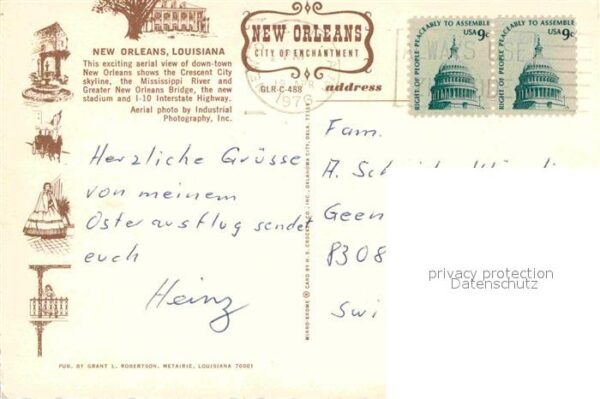 NEW ORLEANS, LOUISIANA
This exciting aerial view of down-town
New Orleans shows the Crescent City
skyline, the Mississippi River and
Greater New Orleans Bridge, the new
stadium and I-10 Interstate Highway.
Aerial photo by Industrial
Photography, Inc.
NEW ORLEANS
CITY OF ENCHANTMENT
GLR-C-488
address
RIGHT OF PEOPLE PEACEABLY TO ASSEMBLE
USA 9c
RIGHT OF PEOPLE PEACEABLY TO ASSEMBLE
USA 9c
Herzliche Grüsse
von meinem
Osterausflug sendet
euch
Heinz
Fam.
A.
Geen
8308
Swi
privacy protection
Datenschutz
MIRRO-KROME ® CARD BY H. S. CROCKER CO., INC., OKLAHOMA CITY, OKLA.
PUB. BY GRANT L. ROBERTSON, METAIRIE, LOUISIANA 70001